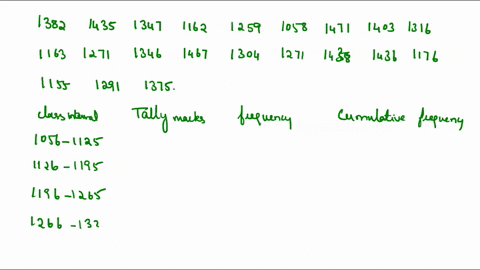 1382 1435 1347 1162 1259 1058 1471 1403 1316
1163 1271 1346 1467 1304 1271 1438 1436 1176
1155 1291 1375.
class interval Tally marks frequency Cummulative frequency
1056-1125
1126-1195
1196-1265
1266-132